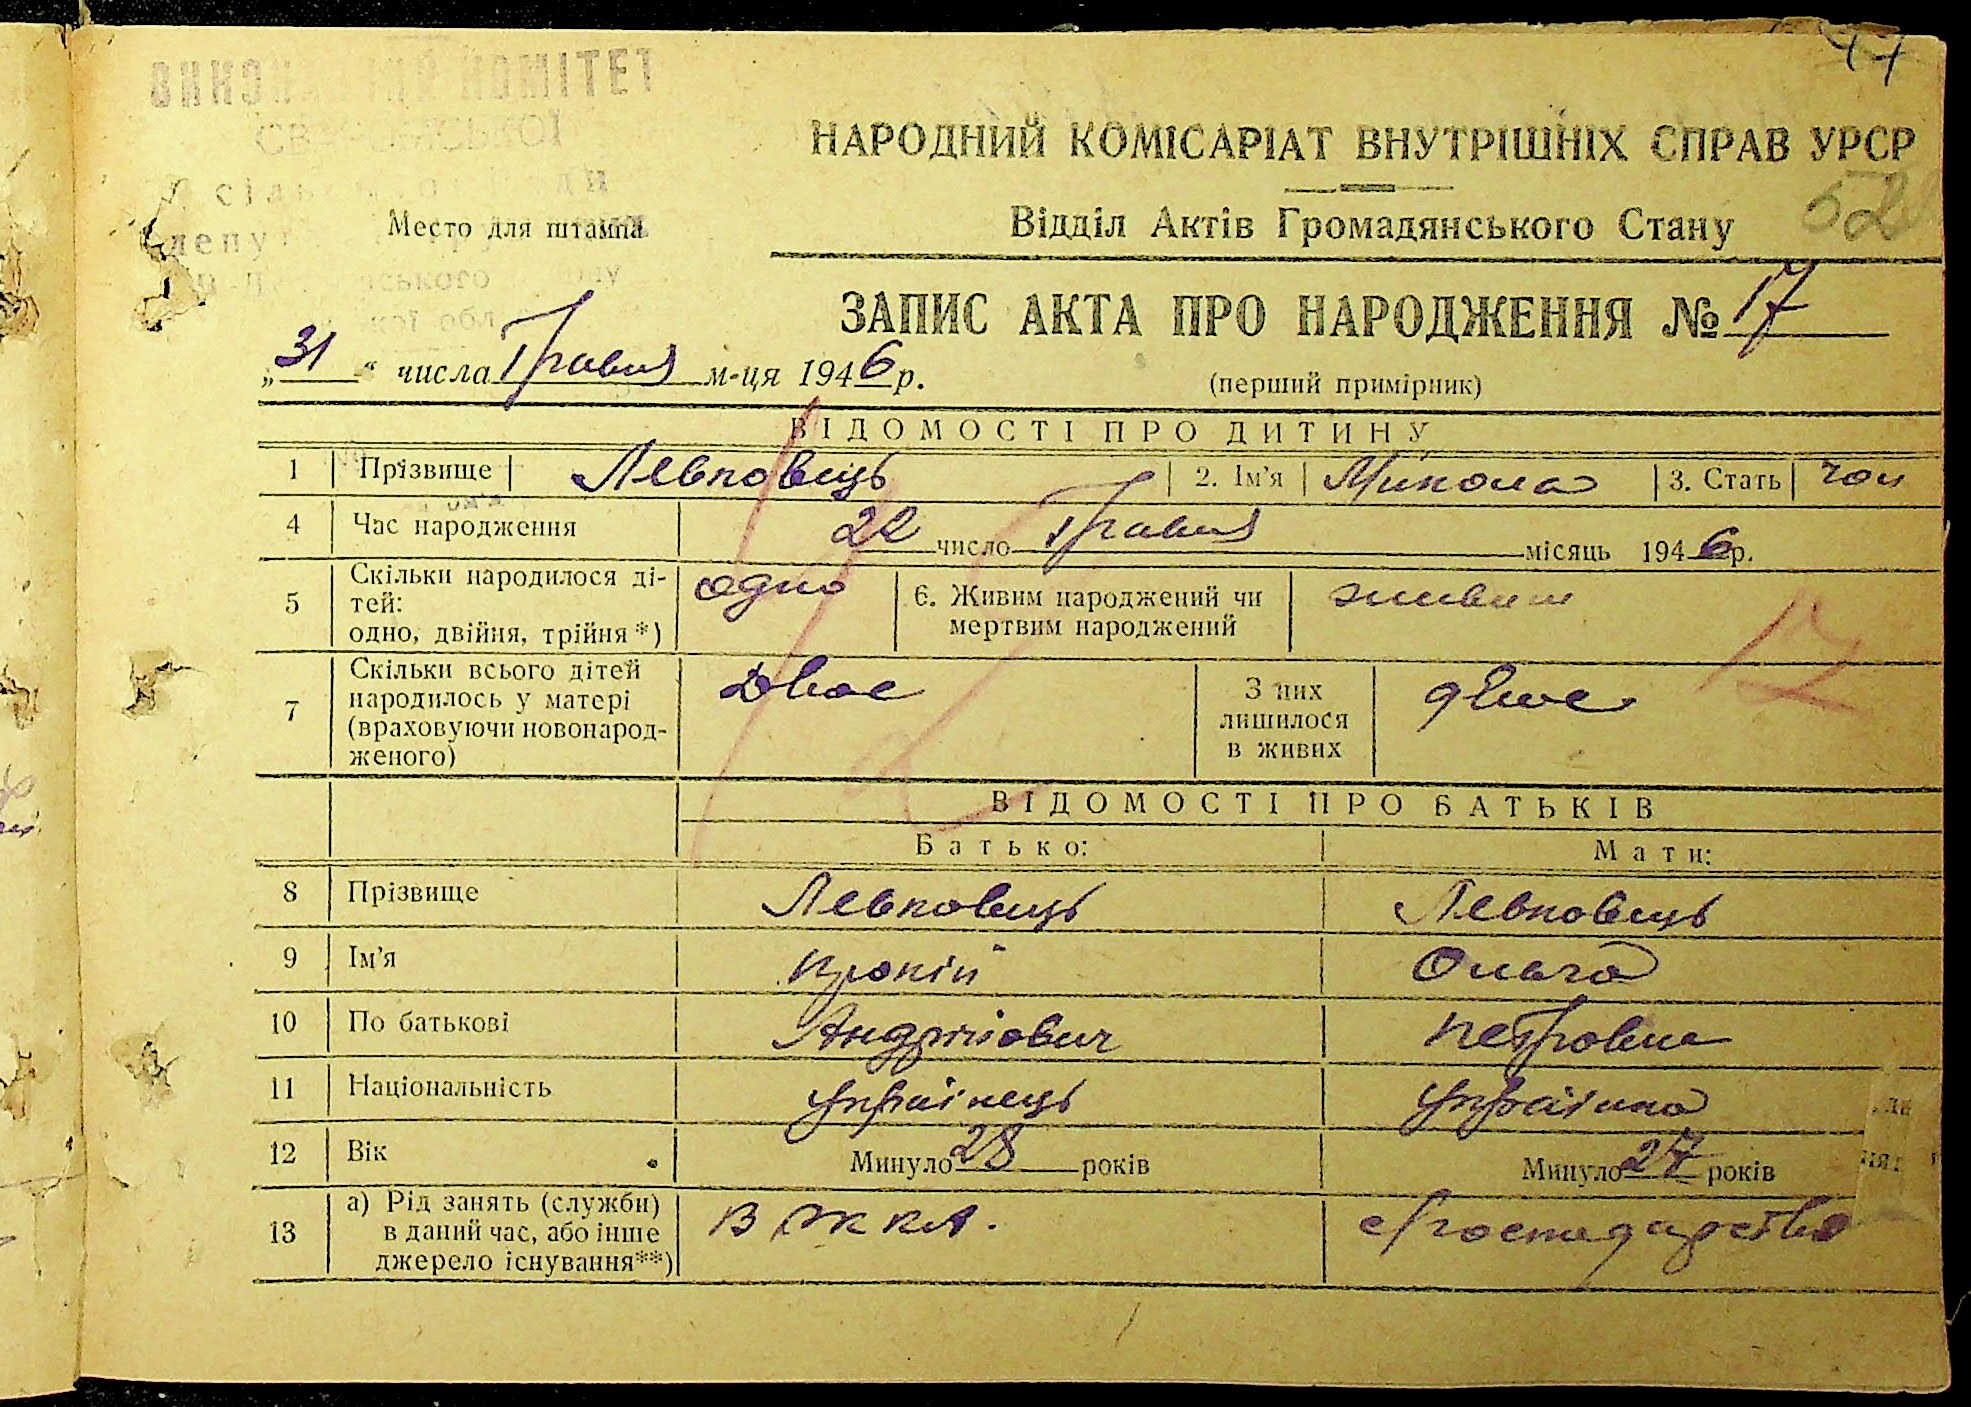 44
ВИКОНАВЧИЙ КОМІТЕТ
НАРОДНИЙ КОМІСАРІАТ ВНУТРІШНІХ СПРАВ УРСР
62
Место для штампа
Відділ Актів Громадянського Стану
ЗАПИС АКТА ПРО НАРОДЖЕННЯ № 17
„31“ числа Травня м-ця 1946 р.
(перший примірник)
ВІДОМОСТІ ПРО ДИТИНУ
1 Прізвище Левковець 2. Ім'я Микола 3. Стать чол
4 Час народження 22 число Травня місяць 1946 р.
5 Скільки народилося ді-
тей:
одно, двійня, трійня *)
одно
6. Живим народжений чи
мертвим народжений
живим
17
7 Скільки всього дітей
народилось у матері
(враховуючи новонарод-
женого)
Двоє
З них
лишилося
в живих
двоє
ВІДОМОСТІ ПРО БАТЬКІВ
Батько: Мати:
8 Прізвище Левковець Левковець
9 Ім'я Ольга
10 По батькові Андрійович Петровна
11 Національність Українець Українка
12 Вік Минуло 28 років Минуло 27 років
13 а) Рід занять (служби)
в даний час, або інше
джерело існування**)